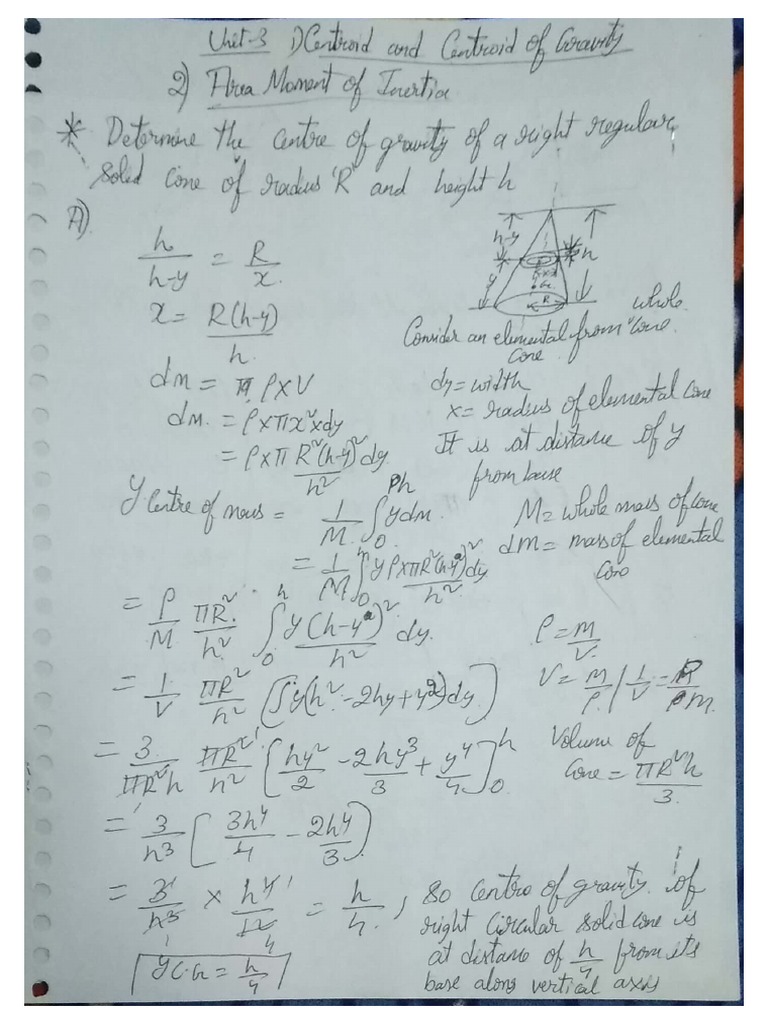 Unit-3 1) Centroid and Centroid of Gravity
2) Area Moment of Inertia
* Determine the centre of gravity of a right regular
solid cone of radius 'R' and height h
A)
h/(h-y) = R/x
x = R(h-y)/h
h-y
h
y
G
R
Consider an elemental from whole cone.
cone
dm = ρ×V
dm = ρ×πx²×dy
= ρ×π R²(h-y)²/h² dy
dy = width
x = radius of elemental cone
It is at distance of y
from base
Y Centre of mass = 1/M ∫₀ʰ y dm
M = whole mass of cone
dm = mass of elemental
cone
= 1/M ∫₀ʰ y ρ×πR²(h-y)²/h² dy
= ρ/M πR²/h² ∫₀ʰ y(h-y)²/h² dy.
ρ = m/V
= 1/V πR²/h² [∫y(h²-2hy+y²)dy]
V = m/ρ | 1/V = ρ/m
= 3/πR²h πR²/h² [hy²/2 - 2hy³/3 + y⁴/4]₀ʰ
Volume of
cone = πR²h/3
= 3/h³ [3h⁴/4 - 2h⁴/3]
= 3/h³ × h⁴/12 = h/4,
so centre of gravity of
right circular solid cone is
at distance of h/4 from its
base along vertical axis
YC.G = h/4